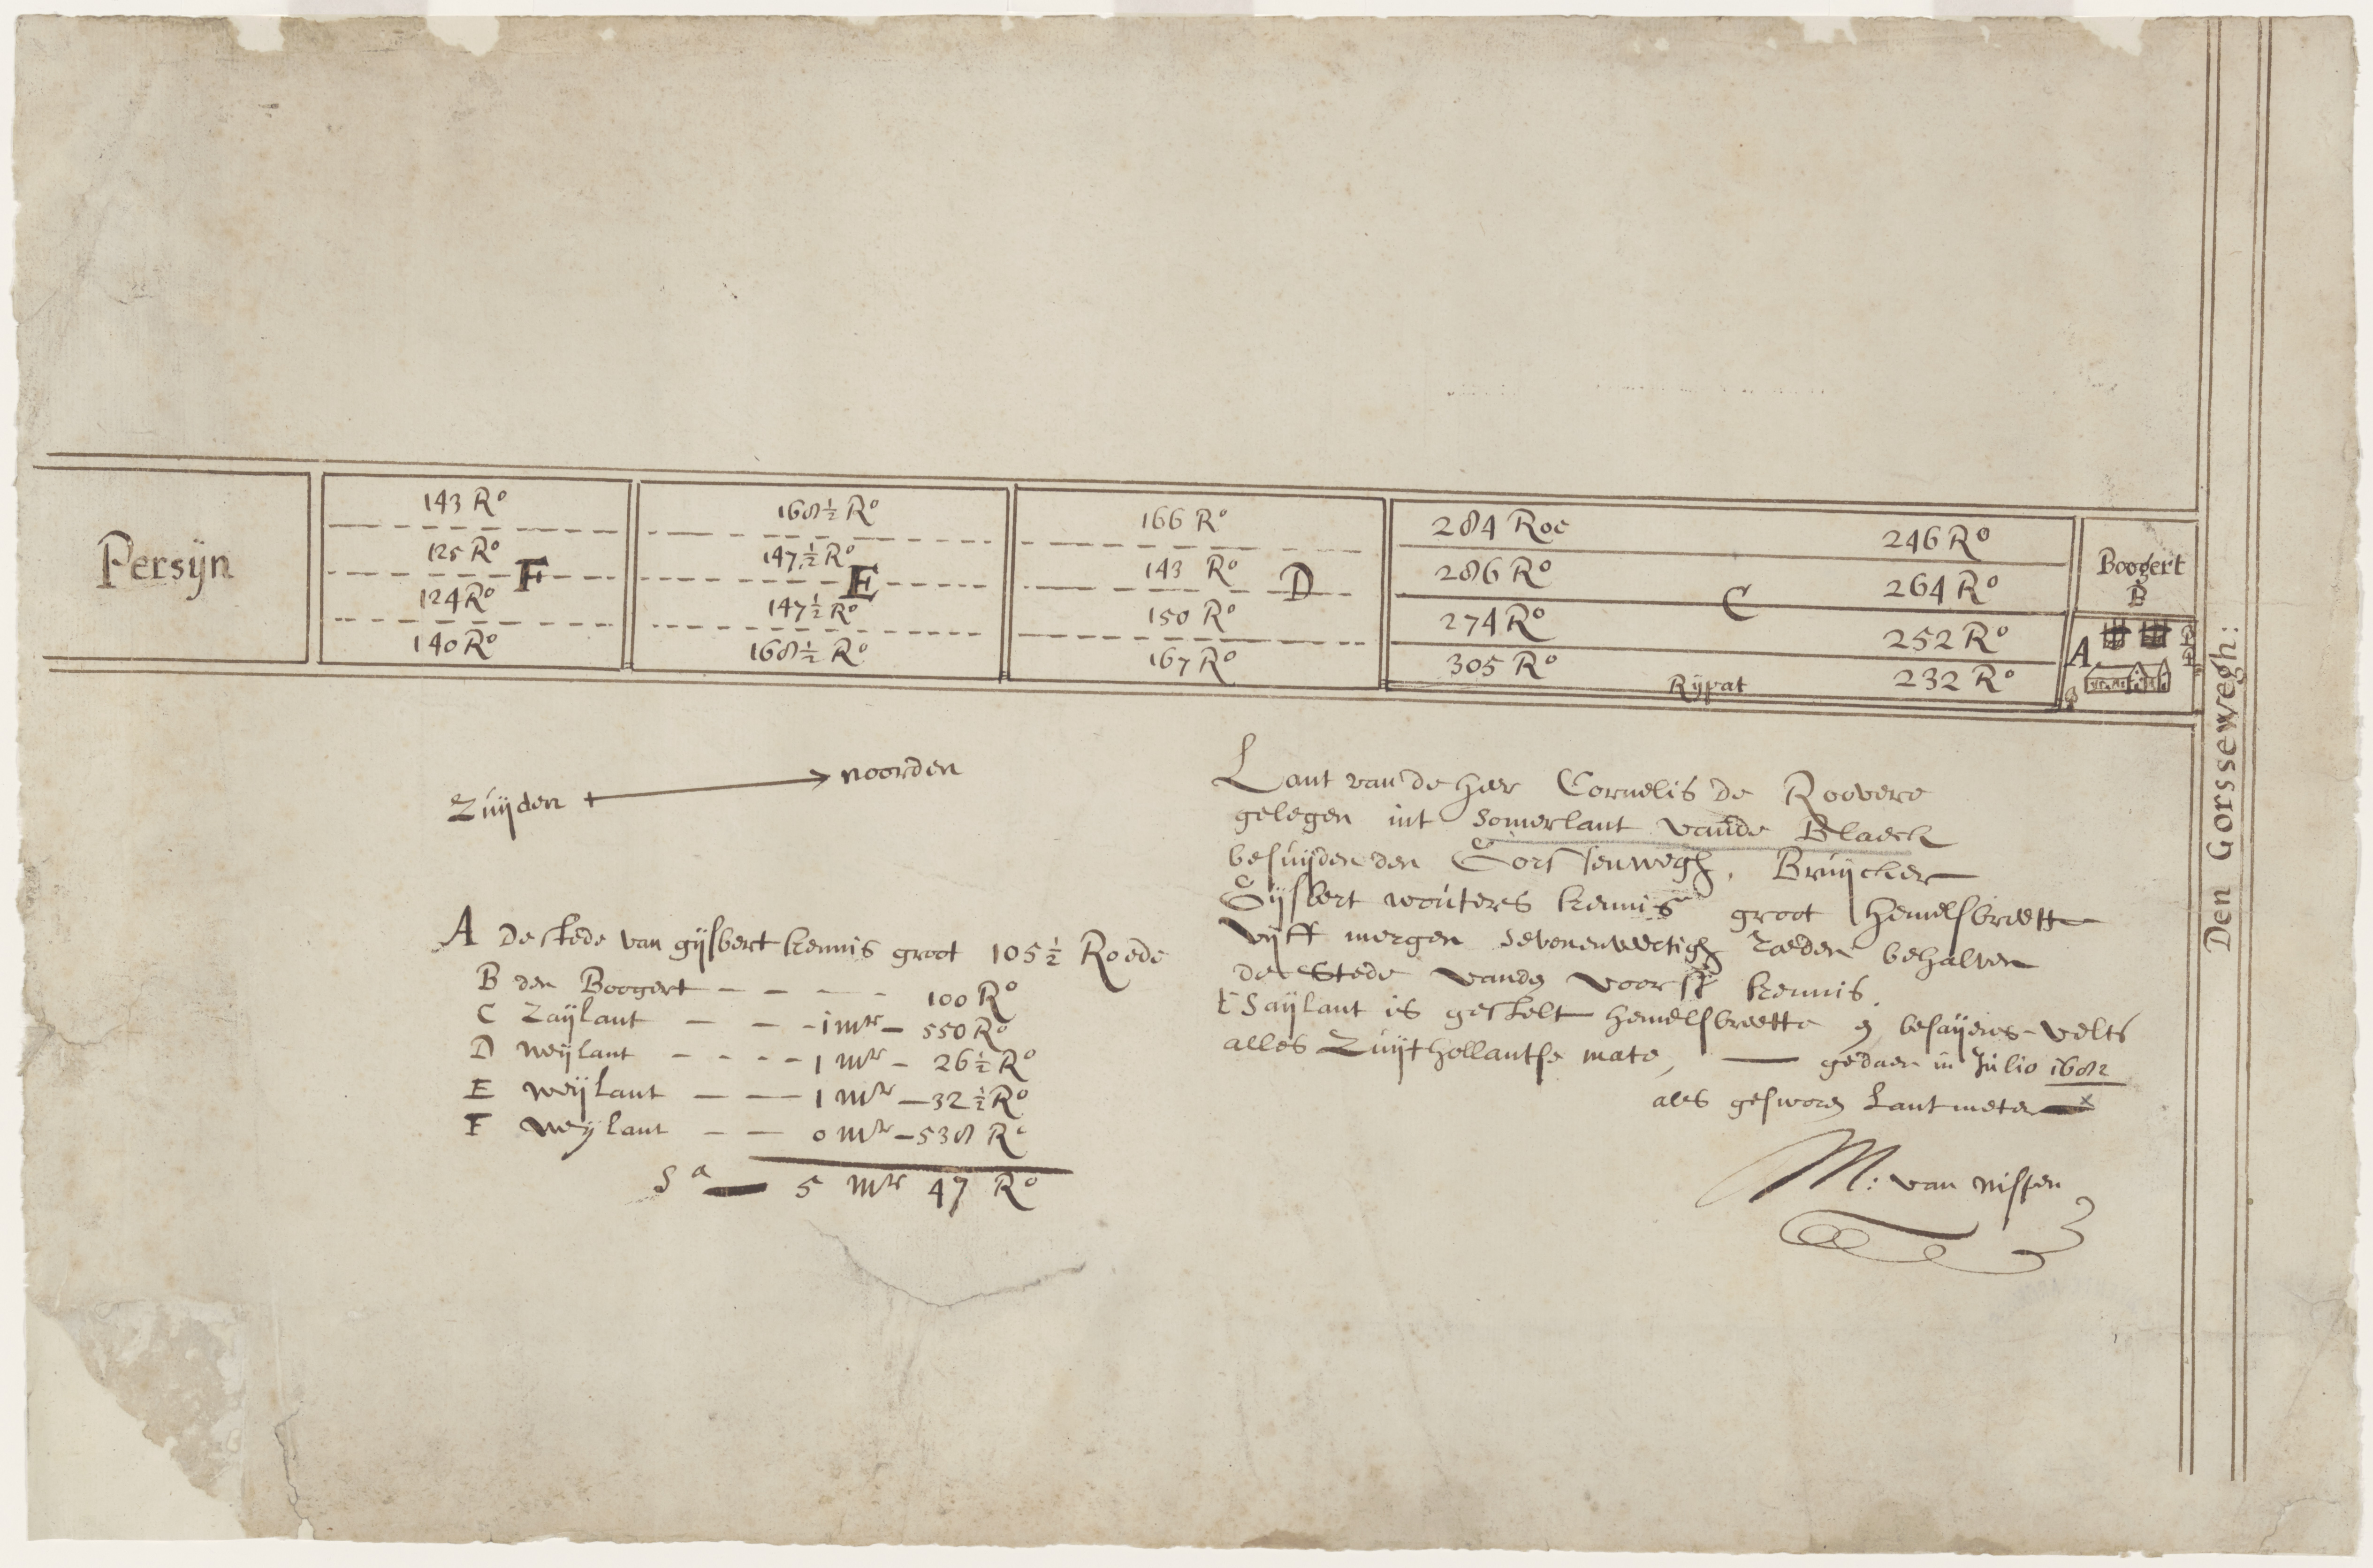 Persijn
143 Ro
125 Ro
F
124 Ro
140 Ro
168½ Ro
147½ Ro
E
147½ Ro
168½ Ro
166 Ro
143 Ro
D
150 Ro
167 Ro
284 Roe
246 Ro
286 Ro
264 Ro
C
274 Ro
252 Ro
305 Ro
232 Ro
Rijpat
Boogert
B
A
Den Gorssewegh:
Zuijden
noorden
A De stede van gijsbert kennis groot 105½ Roede
B den Boogert — — — - 100 Ro
C Zaijlant — — - 1 mr — 550 Ro
D weijlant - - - - 1 mr - 26½ Ro
E weijlant — — 1 mr — 32½ Ro
F weijlant — — 0 mr — 538 Ro
Sa — 5 mr 47 Ro
Lant van de heer Cornelis de Roovere
gelegen int Somerlant vande Blaeck
besuijden den Gorssenwegh, Bruijcker
Gijsbert wouters kennis groot hemelsbreette
vijff mergen sevenenveertigh roeden behalven
de Stede vande voors: kennis.
t Saijlant is gestelt hemelsbreette en besaijens velts
alles Zuijthollantse mate, — gedaen in Julio 1682
als geswore Lantmeter
M: van nispen